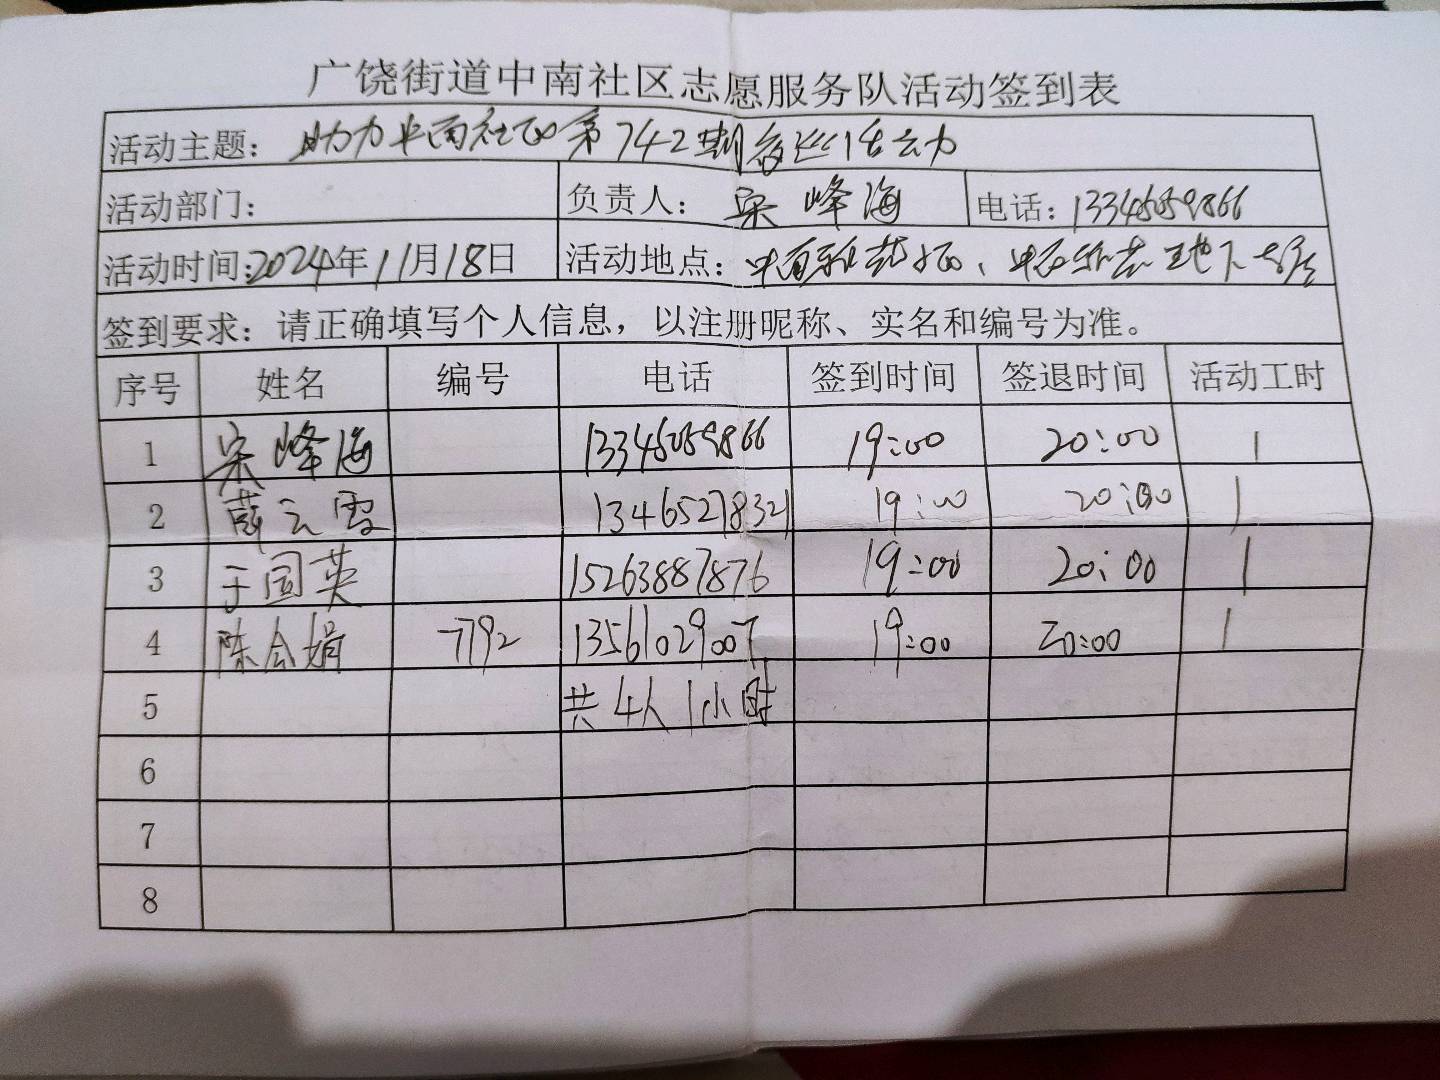 广饶街道中南社区志愿服务队活动签到表
活动主题: 助力中南社区第742期夜巡活动
活动部门: 负责人: 宋峰海 电话: 13345059866
活动时间: 2024年11月18日 活动地点: 中南 、 地下
签到要求: 请正确填写个人信息，以注册昵称、实名和编号为准。
序号 姓名 编号 电话 签到时间 签退时间 活动工时
1 宋峰海 13345059866 19:00 20:00 1
2 薛云霞 13465278321 19:00 20:00 1
3 于国英 15263887876 19:00 20:00 1
4 陈会娟 7792 13561029007 19:00 20:00 1
5 共4人1小时
6
7
8